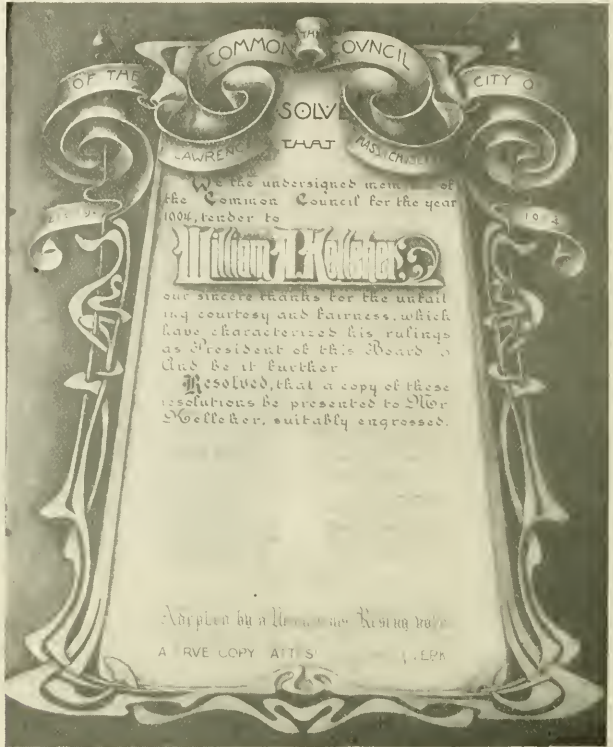 THE
COMMON COVNCIL
OF THE CITY O
LAWRENCE MASSACHUSETTS
SOLVE
THAT
1904
We the undersigned mem of
the Common Council for the year
1904, tender to
William A. Kelleher
our sincere thanks for the unfail
ing courtesy and fairness, which
have characterized his rulings
as President of this Board
And be it further
Resolved, that a copy of these
resolutions be presented to Mr
Kelleher, suitably engrossed.
Adopted by a Unanimous Rising vote
A TRVE COPY ATTEST CLERK